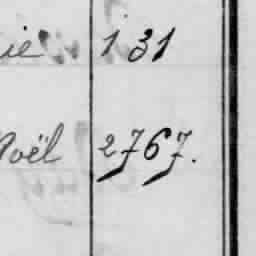 ie 131
Noël 2767.